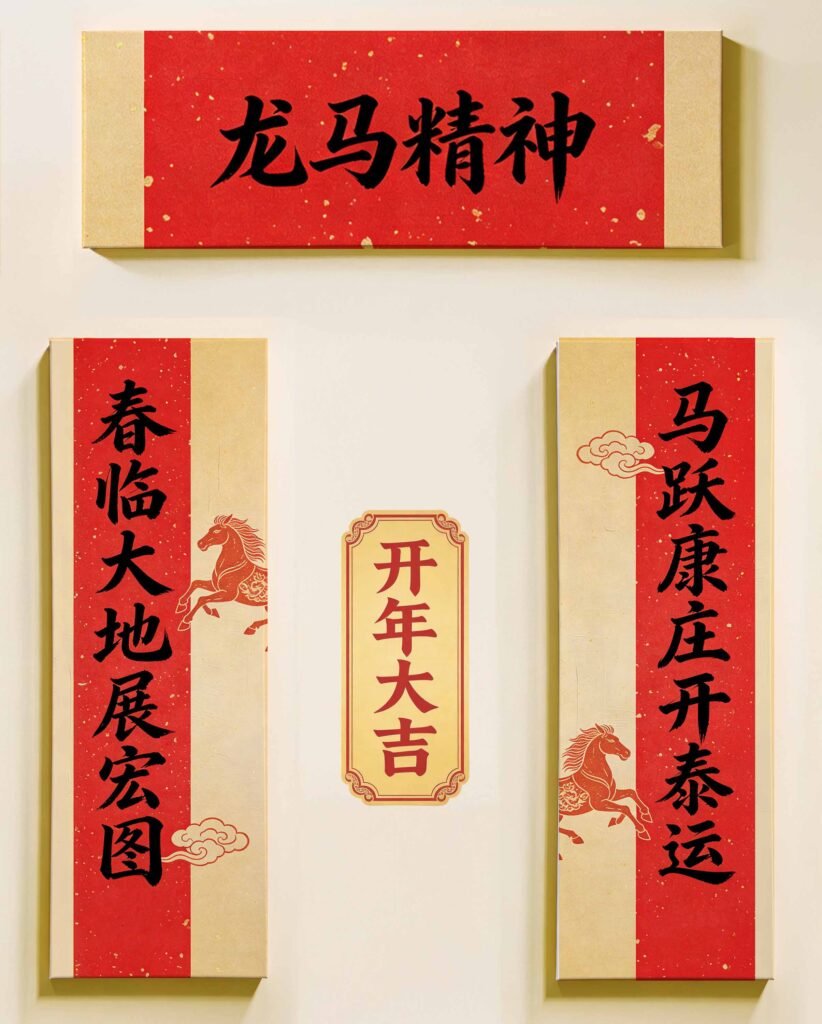 龙马精神
马跃康庄开泰运
春临大地展宏图
开年大吉